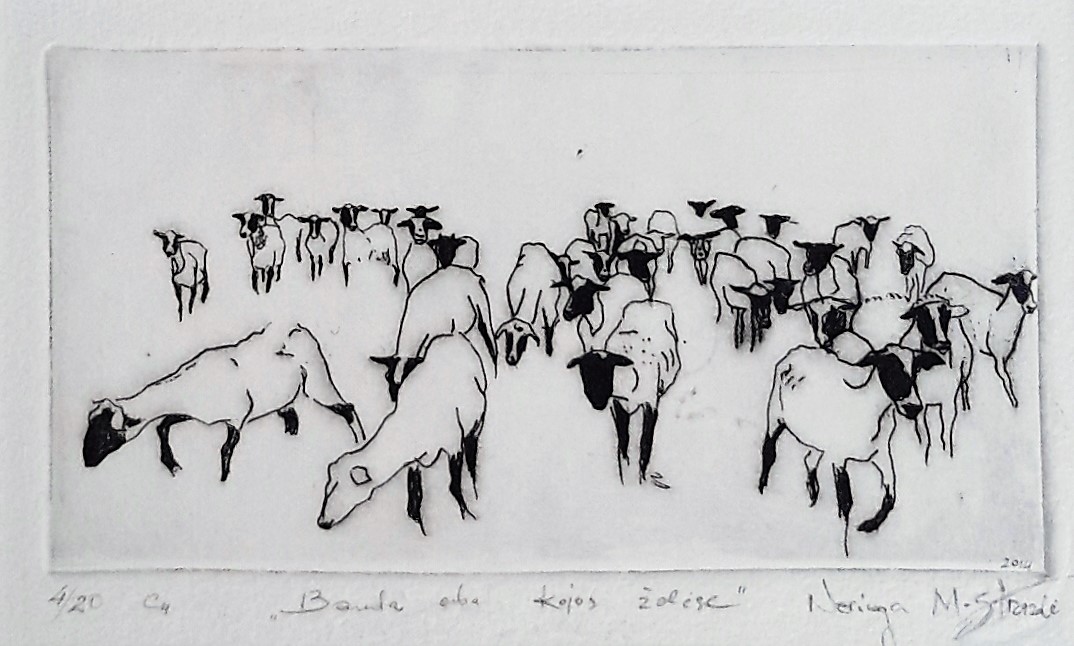 2014
4/20 C4 „Banda arba kojos žolėse" Neringa M.